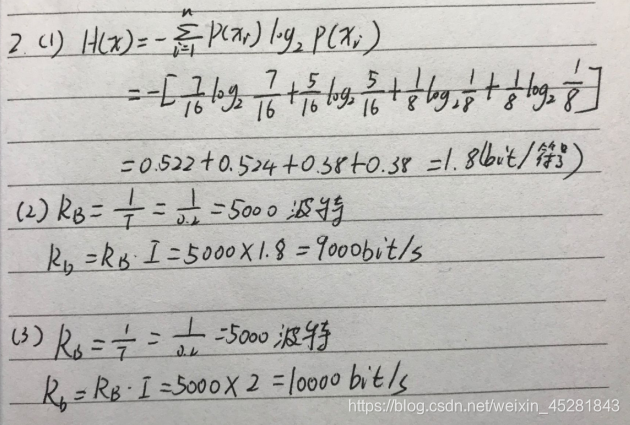 2. (1) H(x)=-∑ⁿᵢ₌₁ P(xᵢ) log₂ P(xᵢ)
=-[7/16 log₂ 7/16 + 5/16 log₂ 5/16 + 1/8 log₂ 1/8 + 1/8 log₂ 1/8]
=0.522+0.524+0.38+0.38 =1.8(bit/符号)
(2) R_B = 1/T = 1/0.2 =5000 波特
R_b = R_B · I =5000×1.8 =9000bit/s
(3) R_B = 1/T = 1/0.2 =5000 波特
R_b = R_B · I =5000×2 =10000 bit/s
https://blog.csdn.net/weixin_45281843